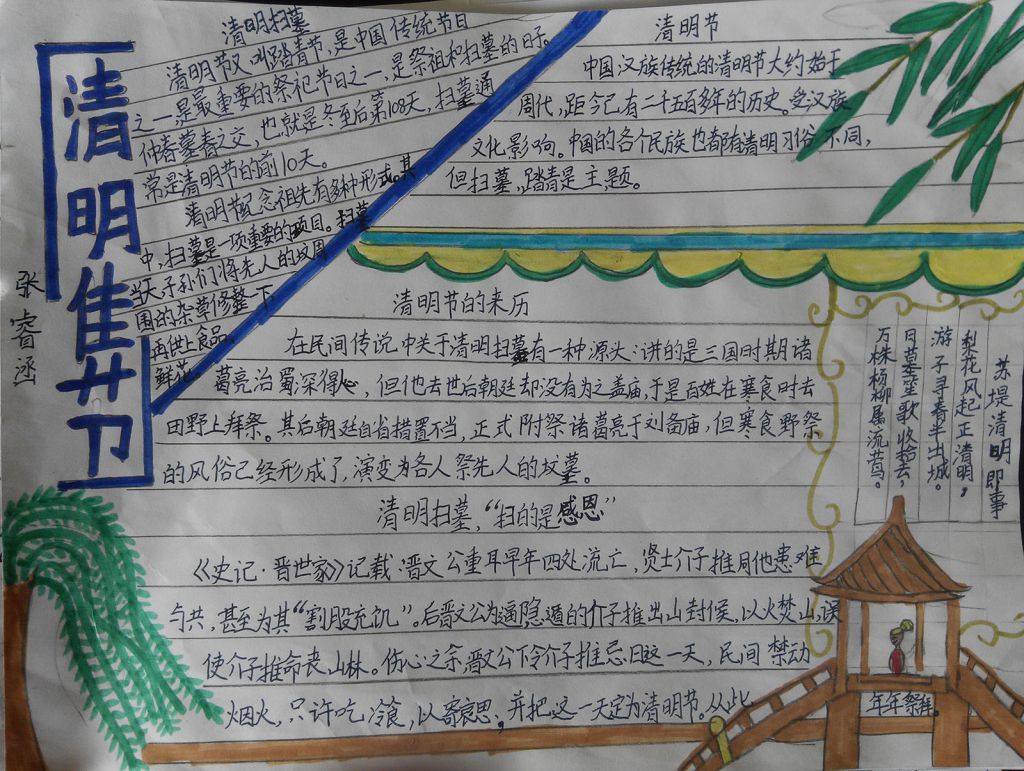 清明佳节
张睿涵
清明扫墓
清明节又叫踏青节,是中国传统节日
之一,是最重要的祭祀节日之一,是祭祖和扫墓的日子。
仲春墓春之交,也就是冬至后第108天,扫墓通
常是清明节的前10天。
清明节纪念祖先有多种形式。其
中,扫墓是一项重要的项目。扫墓
当天子孙们将先人的坟周
围的杂草修整一下,
再供上食品、
鲜花
清明节
中国汉族传统的清明节大约始于
周代,距今已有二千五百多年的历史。受汉族
文化影响。中国的各个民族也都有清明习俗不同,
但扫墓,踏青是主题。
清明节的来历
在民间传说中关于清明扫墓有一种源头:讲的是三国时期诸
葛亮治蜀深得心,但他去世后朝廷却没有为之盖庙,于是百姓在寒食时去
田野上拜祭。其后朝廷自省措置不当,正式附祭诸葛亮于刘备庙,但寒食野祭
的风俗已经形成了,演变为各人祭先人的坟墓。
清明扫墓,“扫的是感恩”
《史记·晋世家》记载:晋文公重耳早年四处流亡,贤士介子推同他患难
与共,甚至为其“割股充饥”。后晋文公为逼隐遁的介子推出山封侯,以火焚山,误
使介子推命丧山林。伤心之余,晋文公下令介子推忌日这一天,民间禁动
烟火,只许吃冷食,以寄哀思,并把这一天定为清明节。从此
年年祭拜。
苏堤清明即事
梨花风起正清明,
游子寻春半出城。
日暮笙歌收拾去,
万株杨柳属流莺。